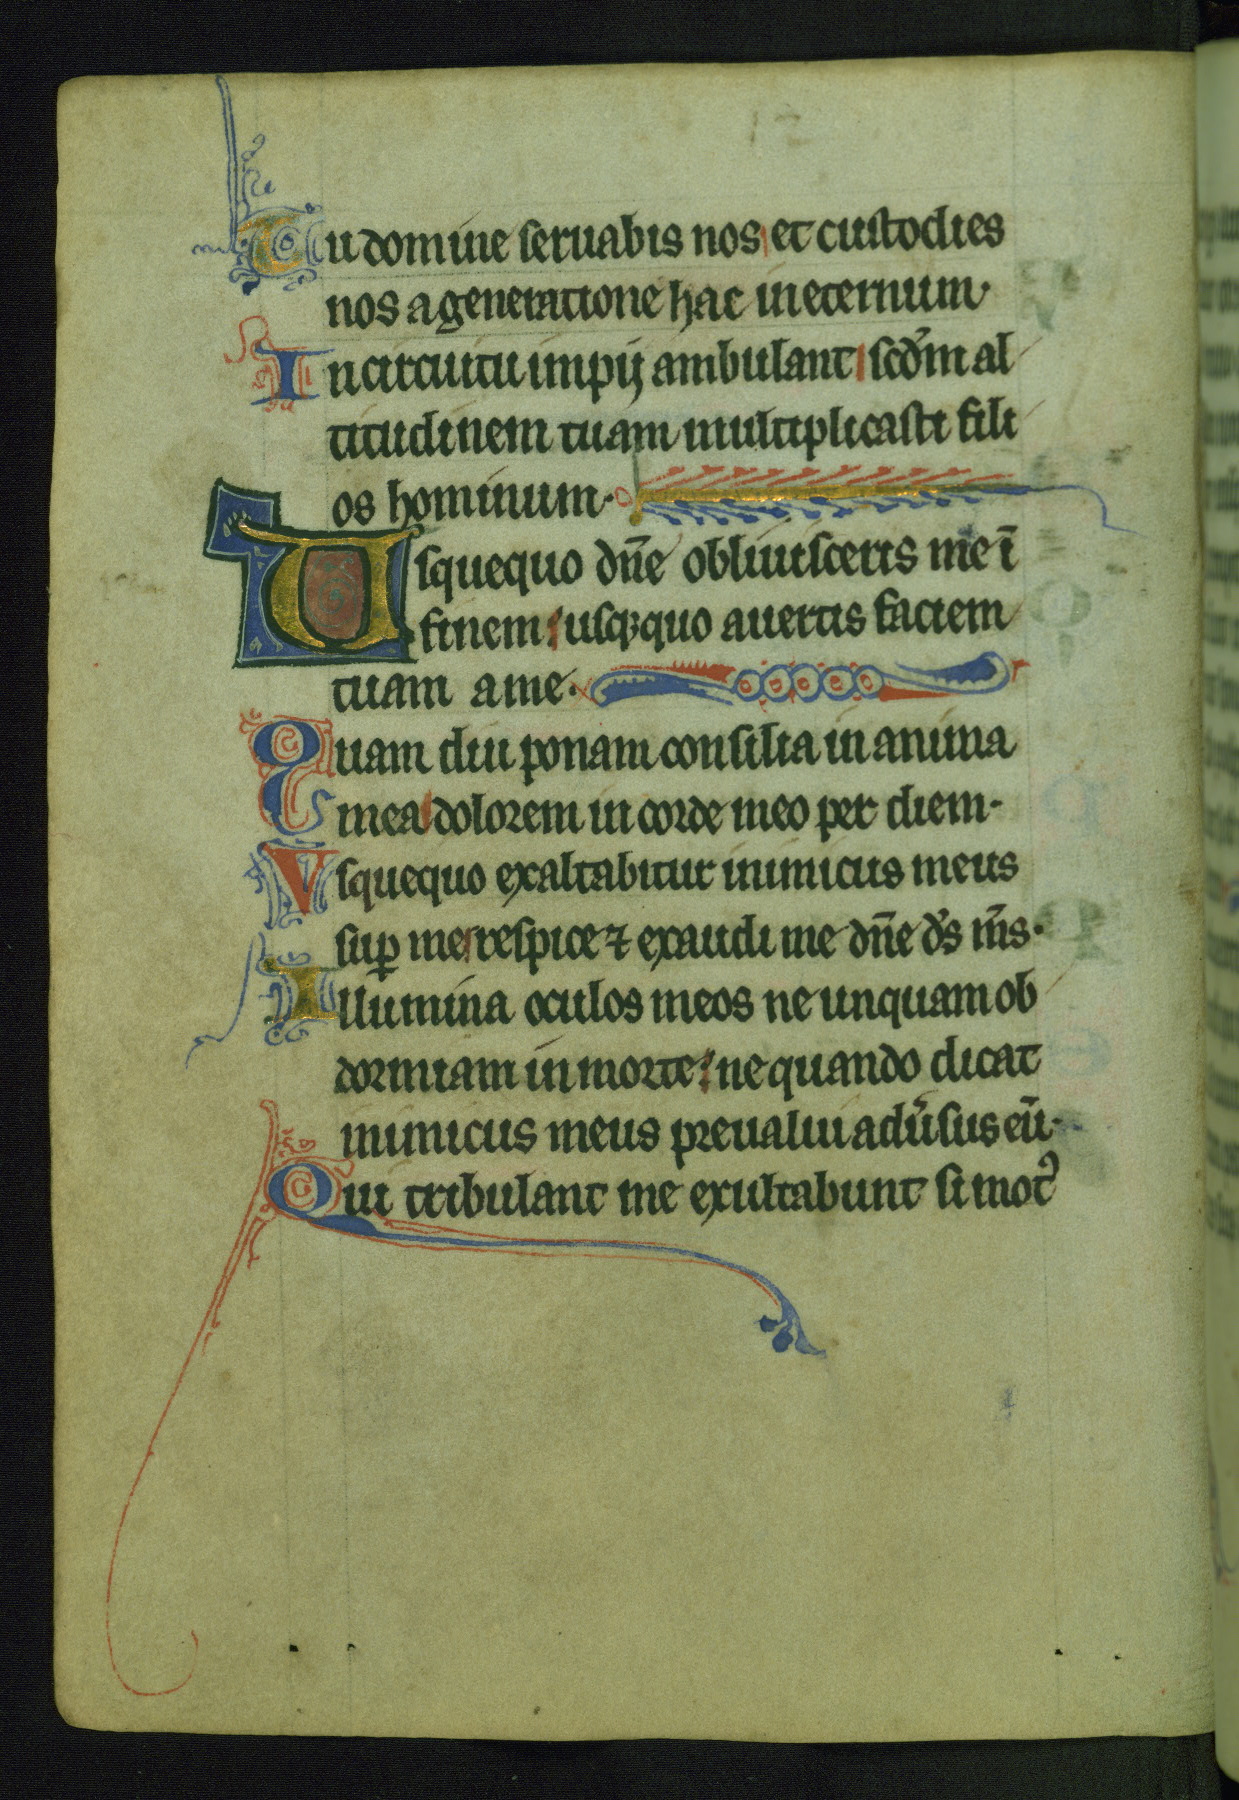 Tu domine seruabis nos et custodies
nos a generatione hac in eternum·
In circuitu impij ambulant scd̄m al
titudinem tuam multiplicasti fili
os hominum·
Usquequo dn̄e obliuisceris me ī
finem: usq;quo auertis faciem
tuam a me·
Quam diu ponam consilia in anima
mea dolorem in corde meo per diem·
Vsquequo exaltabitur inimicus meus
suꝑ me respice ⁊ exaudi me dn̄e ds̄ ms̄·
Illumina oculos meos ne unquam ob
dormiam in morte: ne quando dicat
inimicus meus preualui adūsus eū·
Qui tribulant me exultabunt si motꝰ